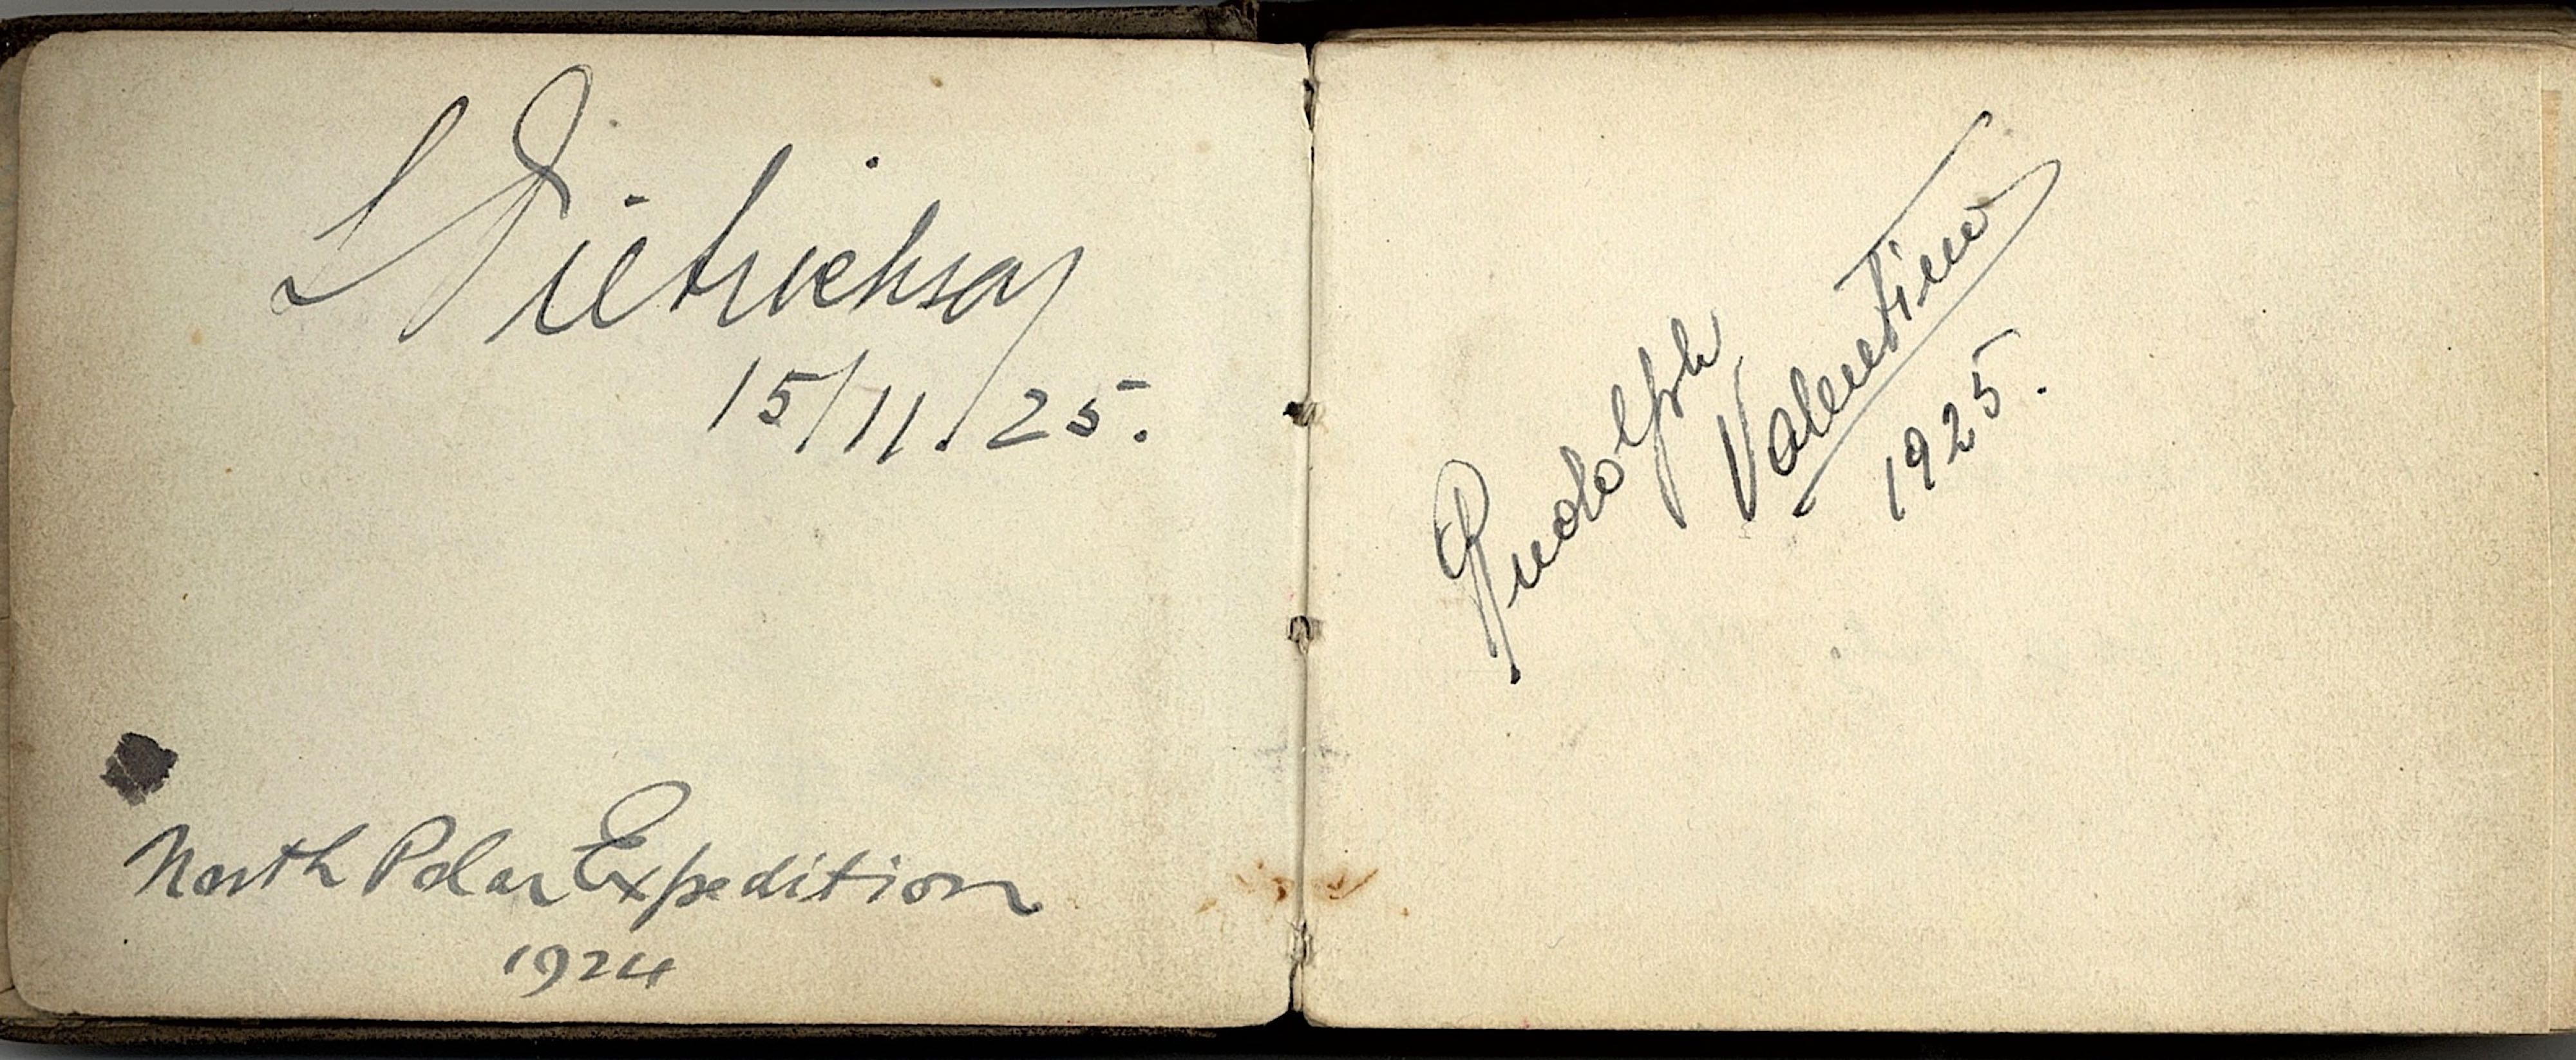 L Dietrichson
15/11./25.
North Polar Expedition
1924
Rudolph
Valentino
1925.